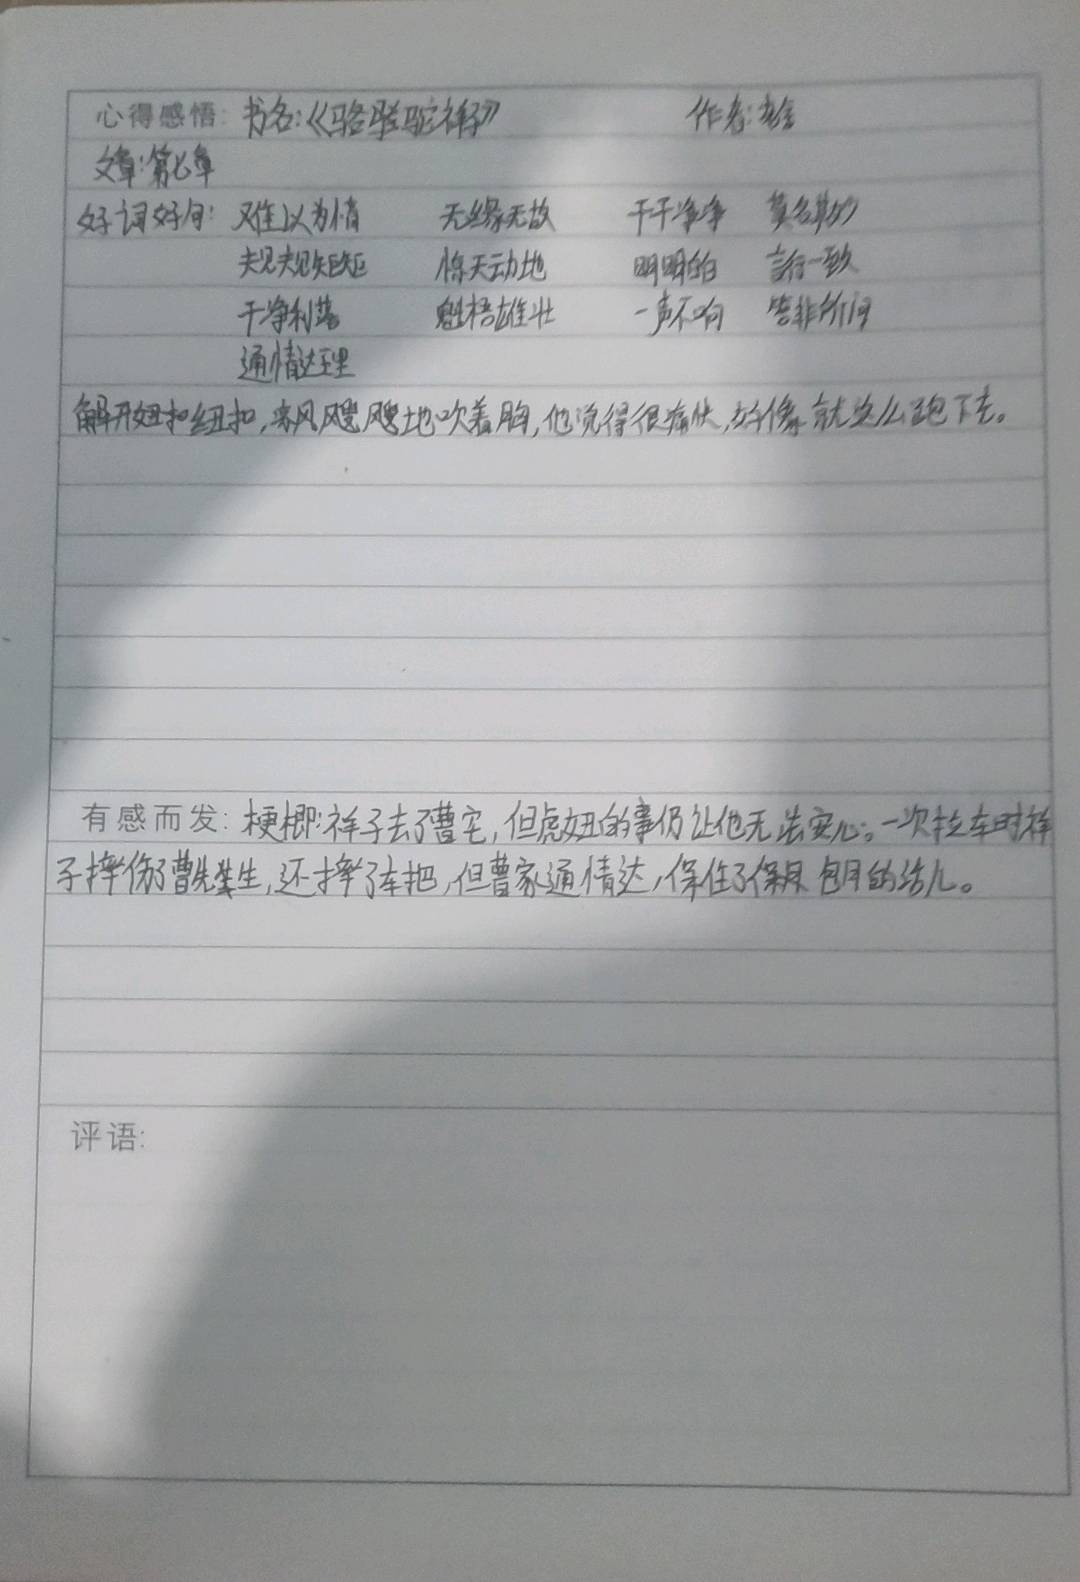 心得感悟: 书名:《骆驼祥子》 作者:老舍
文章:第七章
好词好句: 难以为情 无缘无故 干干净净 莫名其妙
规规矩矩 惊天动地 明明白白 言行一致
干净利落 魁梧雄壮 一声不响 答非所问
通情达理
解开纽扣,凉风飕飕地吹着胸,他觉得很痛快,好像就这么跑下去。
有感而发: 梗概:祥子去了曹宅,但虎妞的事仍让他无法安心。一次拉车时祥
子摔伤了曹先生,还摔了车把,但曹家通情达,保住了包月的活儿。
评语: